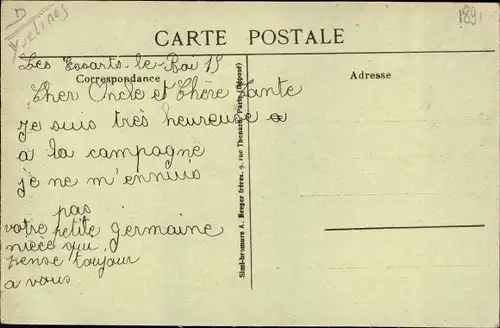 D
Yvelines
1891
CARTE POSTALE
Les Essarts-le-Roi 15
Correspondance
Adresse
Cher Oncle et Chère Tante
Je suis très heureuse
a la campagne
je ne m'ennuis
pas
votre petite germaine
niece qui
pense toujour
a vous
Simi-bromure A. Breger frères, 9, rue Thénard, Paris (Déposé)